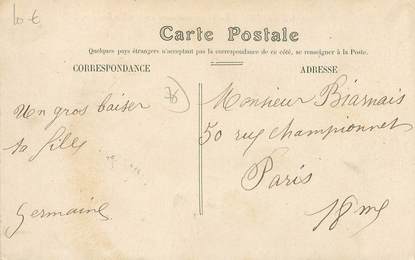 10 €
Carte Postale
Quelques pays étrangers n'acceptant pas la correspondance de ce côté, se renseigner à la Poste.
CORRESPONDANCE
ADRESSE
76
Un gros baiser
ta fille
Germaine
Monsieur Biarnais
50 rue Championnet
Paris
18me